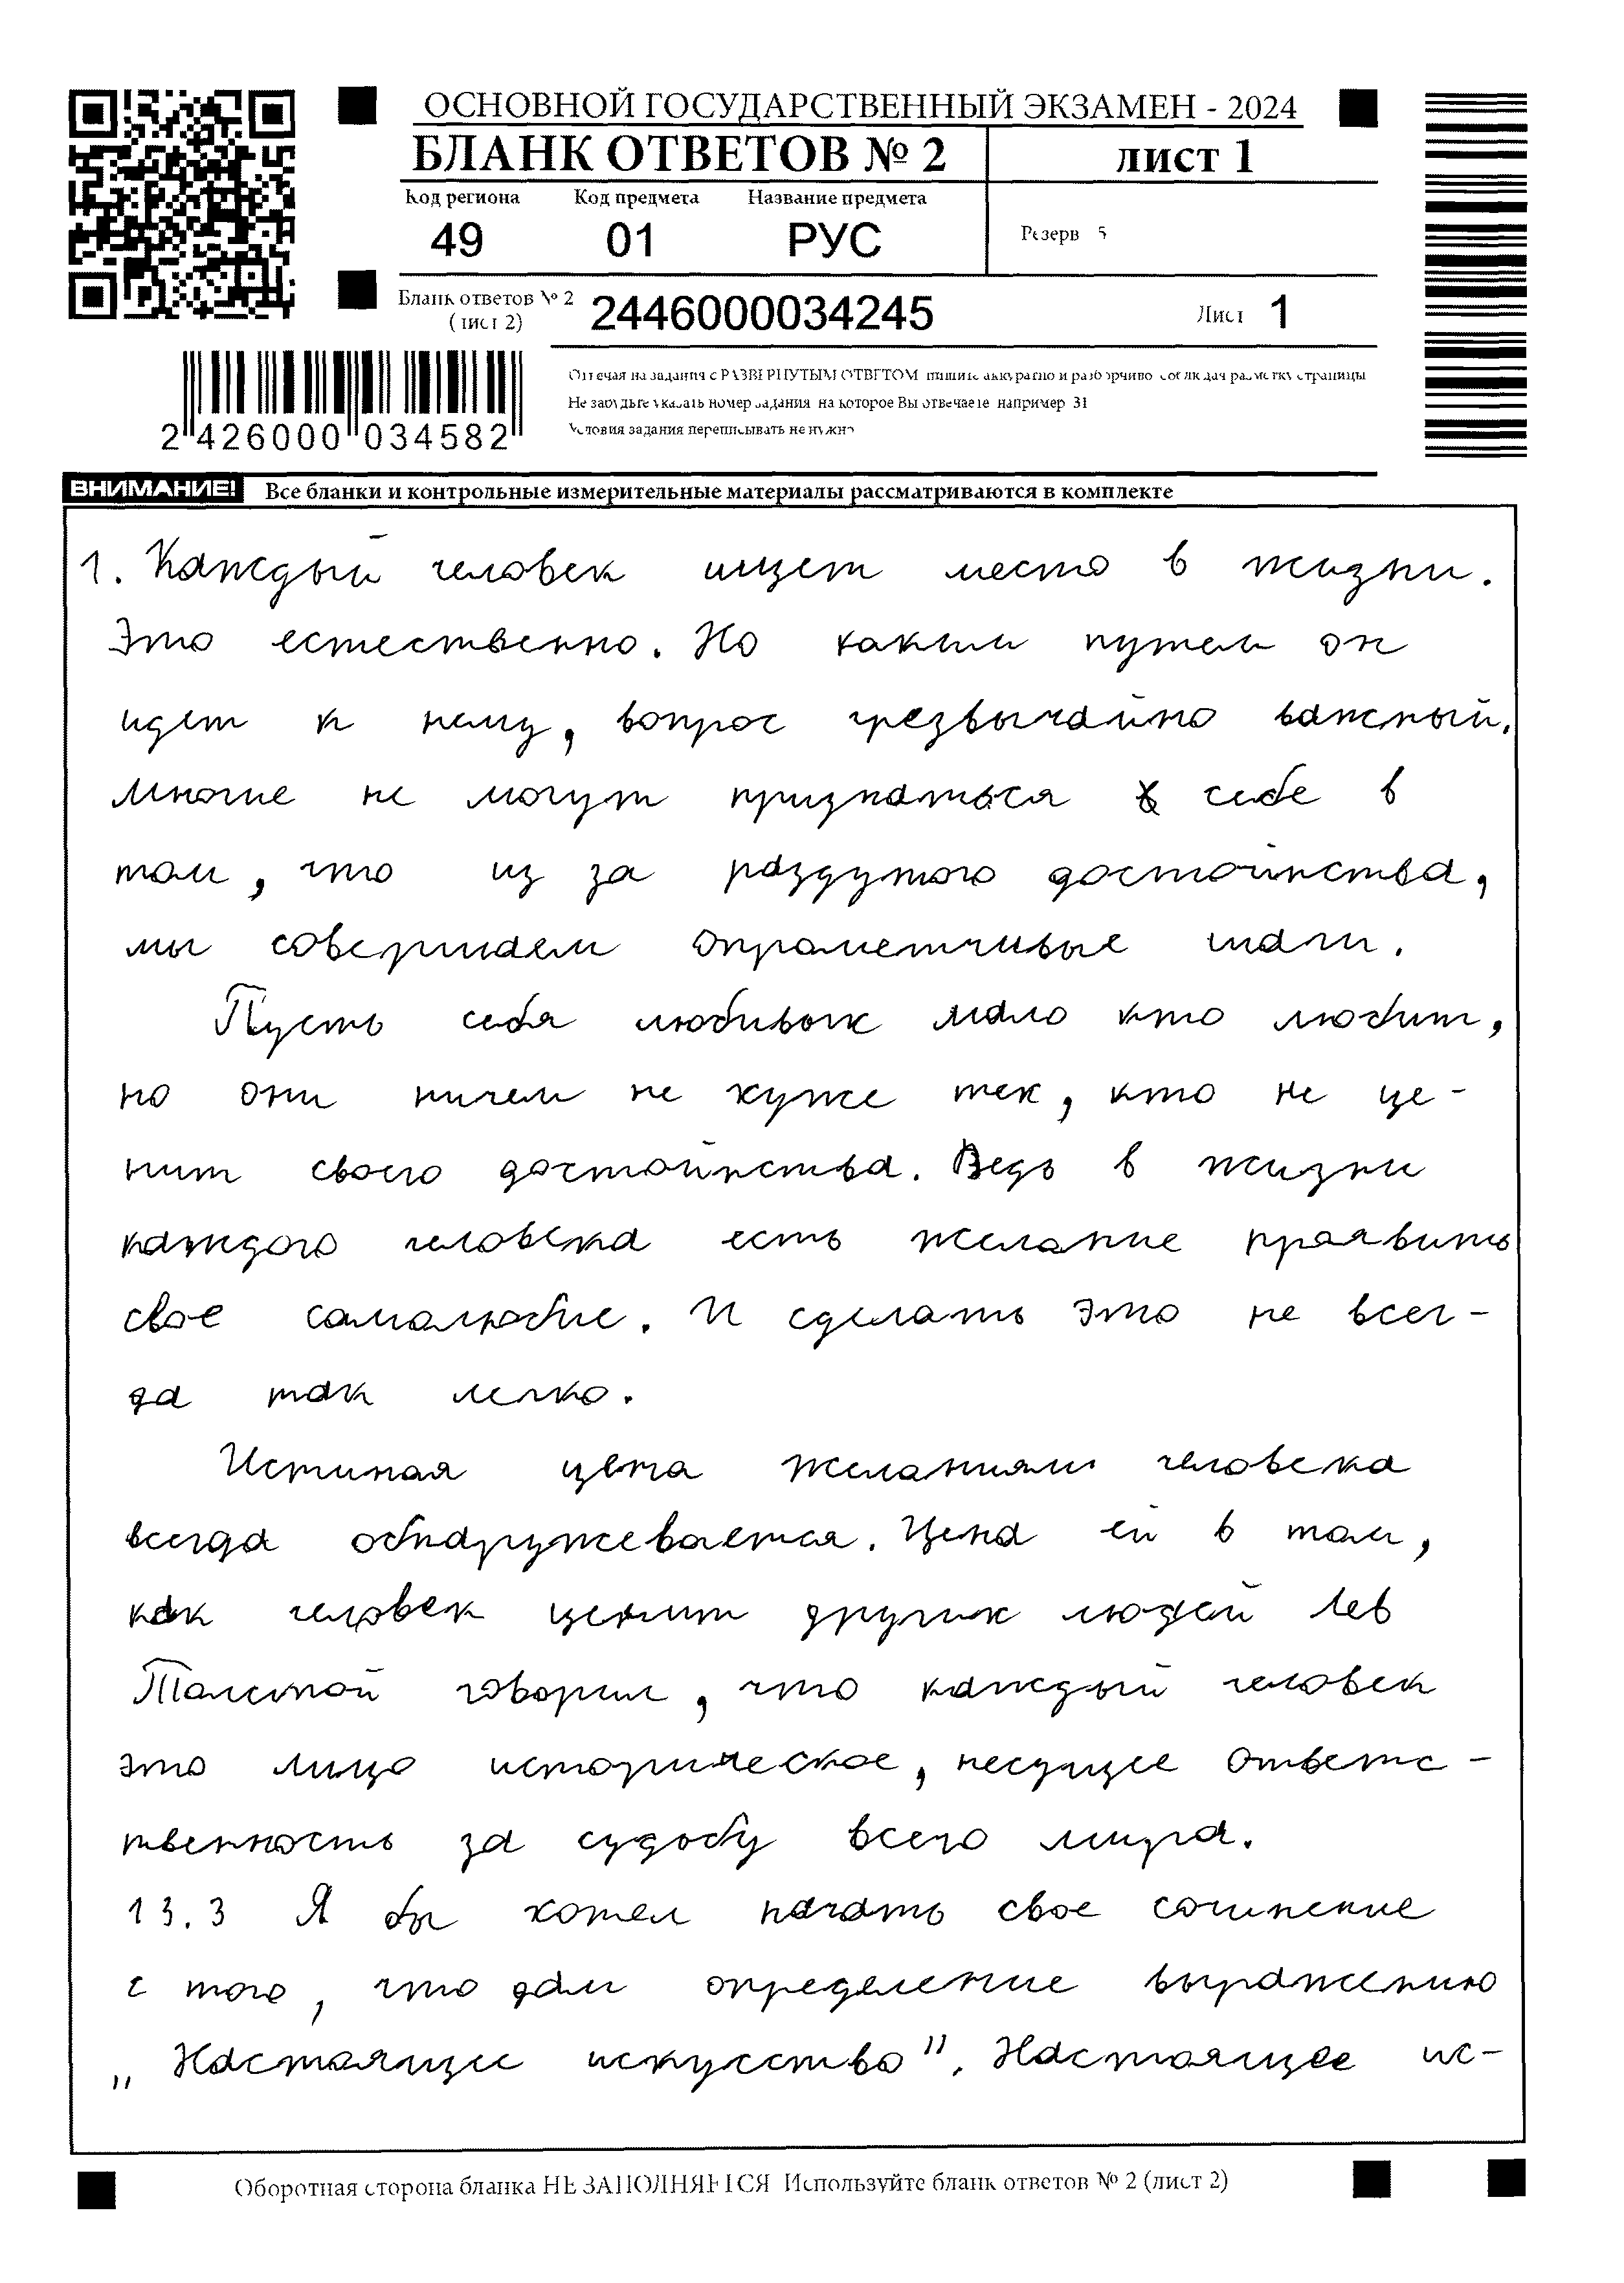 ОСНОВНОЙ ГОСУДАРСТВЕННЫЙ ЭКЗАМЕН - 2024
БЛАНК ОТВЕТОВ № 2
лист 1
Код региона Код предмета Название предмета
49 01 РУС
Резерв 5
Бланк ответов № 2
(лист 2)
2446000034245
Лист 1
2 426000 034582
Отвечая на задания с РАЗВЕРНУТЫМ ОТВЕТОМ пишите аккуратно и разборчиво соблюдая разметку страницы
Не забудьте указать номер задания на которое Вы отвечаете например 31
Условия задания переписывать не нужно
ВНИМАНИЕ! Все бланки и контрольные измерительные материалы рассматриваются в комплекте
1. Каждый человек ищет место в жизни.
Это естественно. Но каким путем он
идет к нему, вопрос чрезвычайно важный.
Многие не могут признаться себе в
том, что из за раздутого достоинства,
мы совершаем опрометчивые шаги.
Пусть себя любивых мало кто любит,
но они ничем не хуже тех, кто не це-
нит своего достоинства. Ведь в жизни
каждого человека есть желание праявить
свое самолюбие. И сделать это не всег-
да так легко.
Истиная цена желаниям человека
всегда обнаружевается. Цена ей в том,
как человек ценит других людей Лев
Талстой говорил, что каждый человек
это лицо историческое, несущее ответс-
твенность за судобу всего мира.
13.3 Я бы хотел начать свое сочинение
с того, что дам определение выражению
„Настоящее искусство". Настоящее ис-
Оборотная сторона бланка НЕ ЗАПОЛНЯЕТСЯ Используйте бланк ответов № 2 (лист 2)